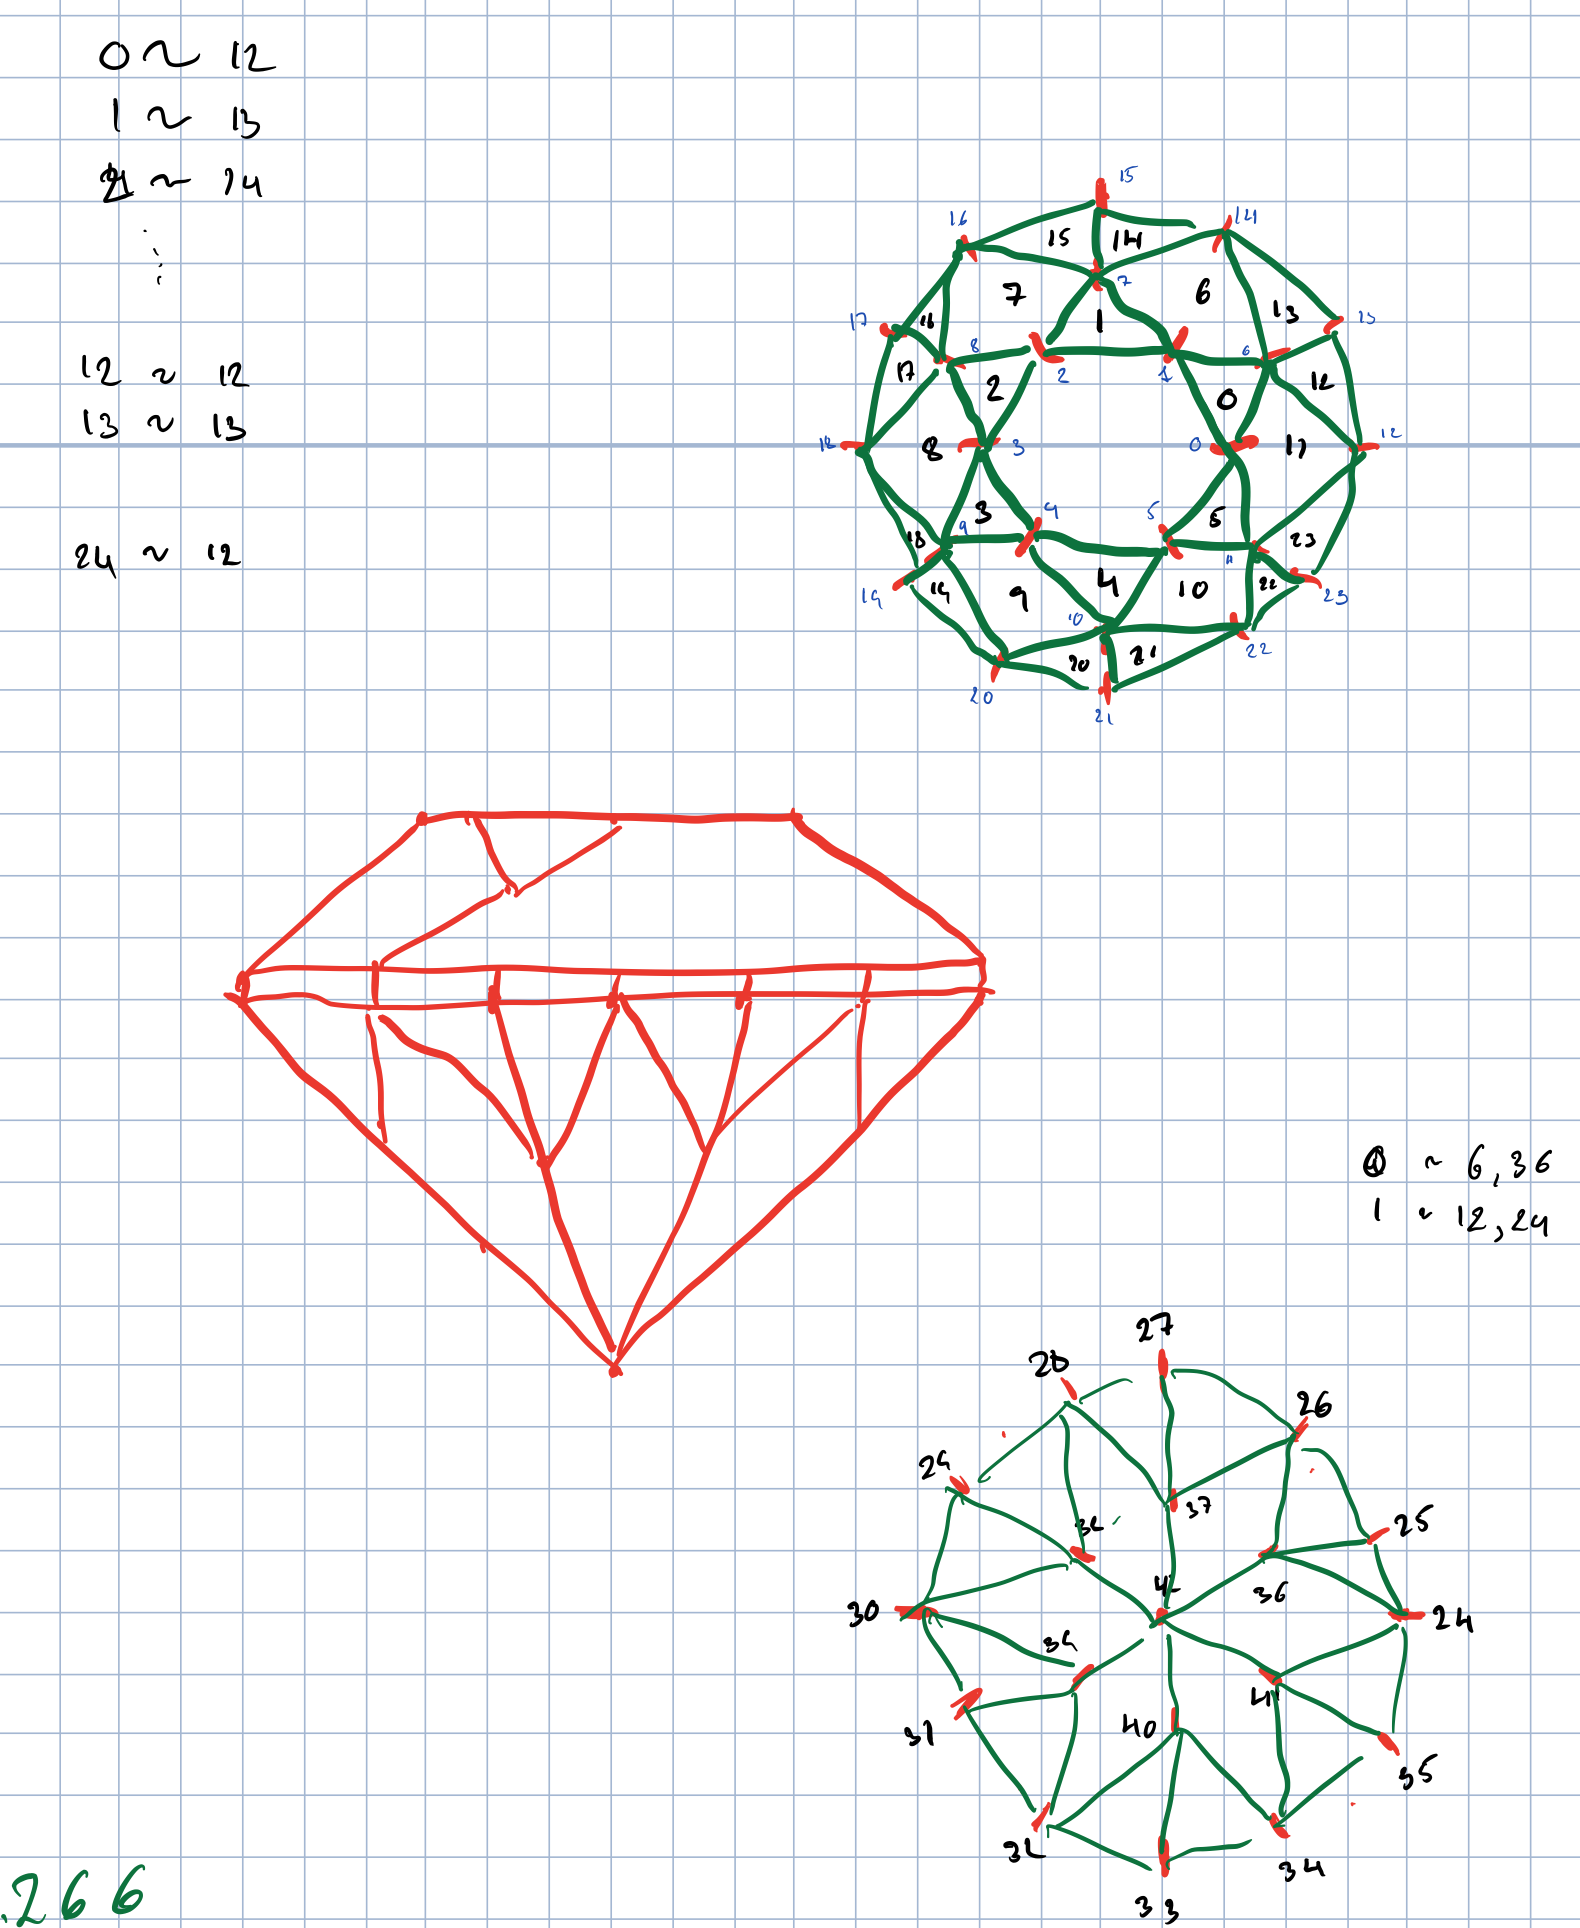 0 ~ 12
1 ~ 13
2 ~ 14
⋮
12 ~ 12
13 ~ 13
24 ~ 12
15
16
14
15 14
7
7
6
1
13
13
17
16
8
6
2
1
17
2
12
0
18
8
3
0
11
12
3
4
5
5
9
18
11
23
19
9
4
10
22
19
23
10
20
21
22
20
21
0 ~ 6, 36
1 ~ 12, 24
27
28
26
29
37
25
38
42
36
30
24
39
41
40
31
35
32
34
33
.266